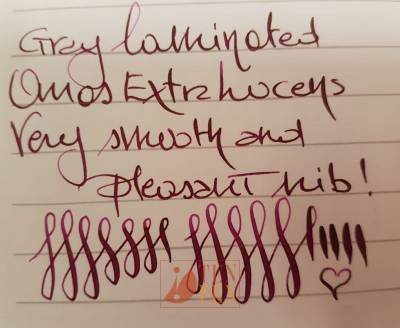 Grey laminated
Omas Extra Lucens
Very smooth and
pleasant nib!